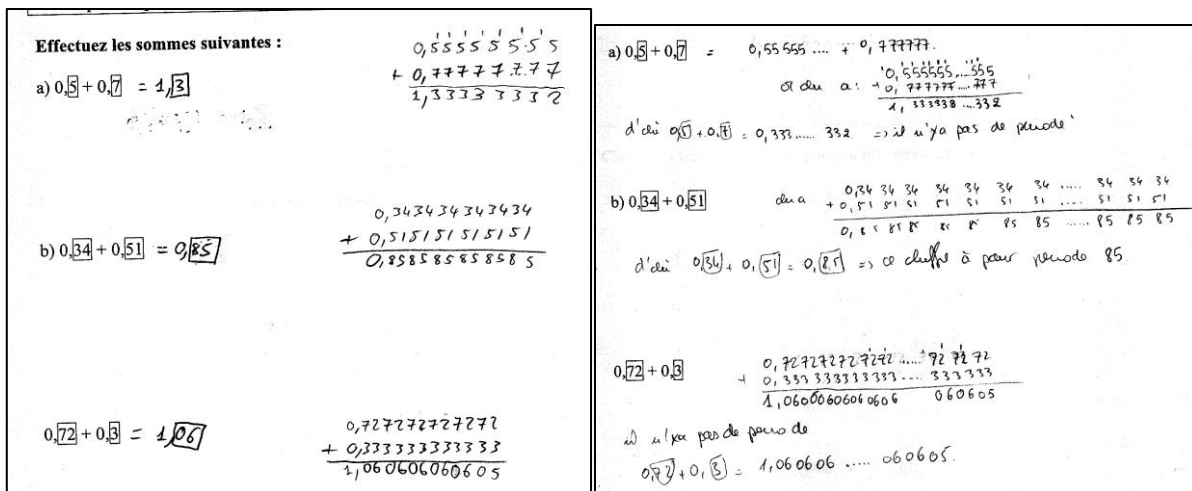 Effectuez les sommes suivantes :
0,55555555
+ 0,77777777
1,33333332
a) 0,5 + 0,7 = 1,3
0,343434343434
+ 0,515151515151
0,858585858585
b) 0,34 + 0,51 = 0,85
0,727272727272
+ 0,333333333333
1,060606060605
0,72 + 0,3 = 1,06
a) 0,5 + 0,7 = 0,55555.... + 0,777777.
0,555555....555
+ 0,777777....777
1,333333...332
d'où 0,5 + 0,7 = 0,333..... 332 => il n'y a pas de période
b) 0,34 + 0,51 on a
0,34 34 34 34 34 34 34 ..... 34 34 34
+ 0,51 51 51 51 51 51 51 .... 51 51 51
0,85 85 85 85 85 85 85 ..... 85 85 85
d'où 0,34 + 0,51 = 0,85 => ce chiffre à pour période 85
0,72 + 0,3
0,727272727272 .... 727272
+ 0,333333333333 .... 333333
1,06000606060606 060605
il n'y a pas de période
0,72 + 0,3 = 1,060606 ..... 060605.